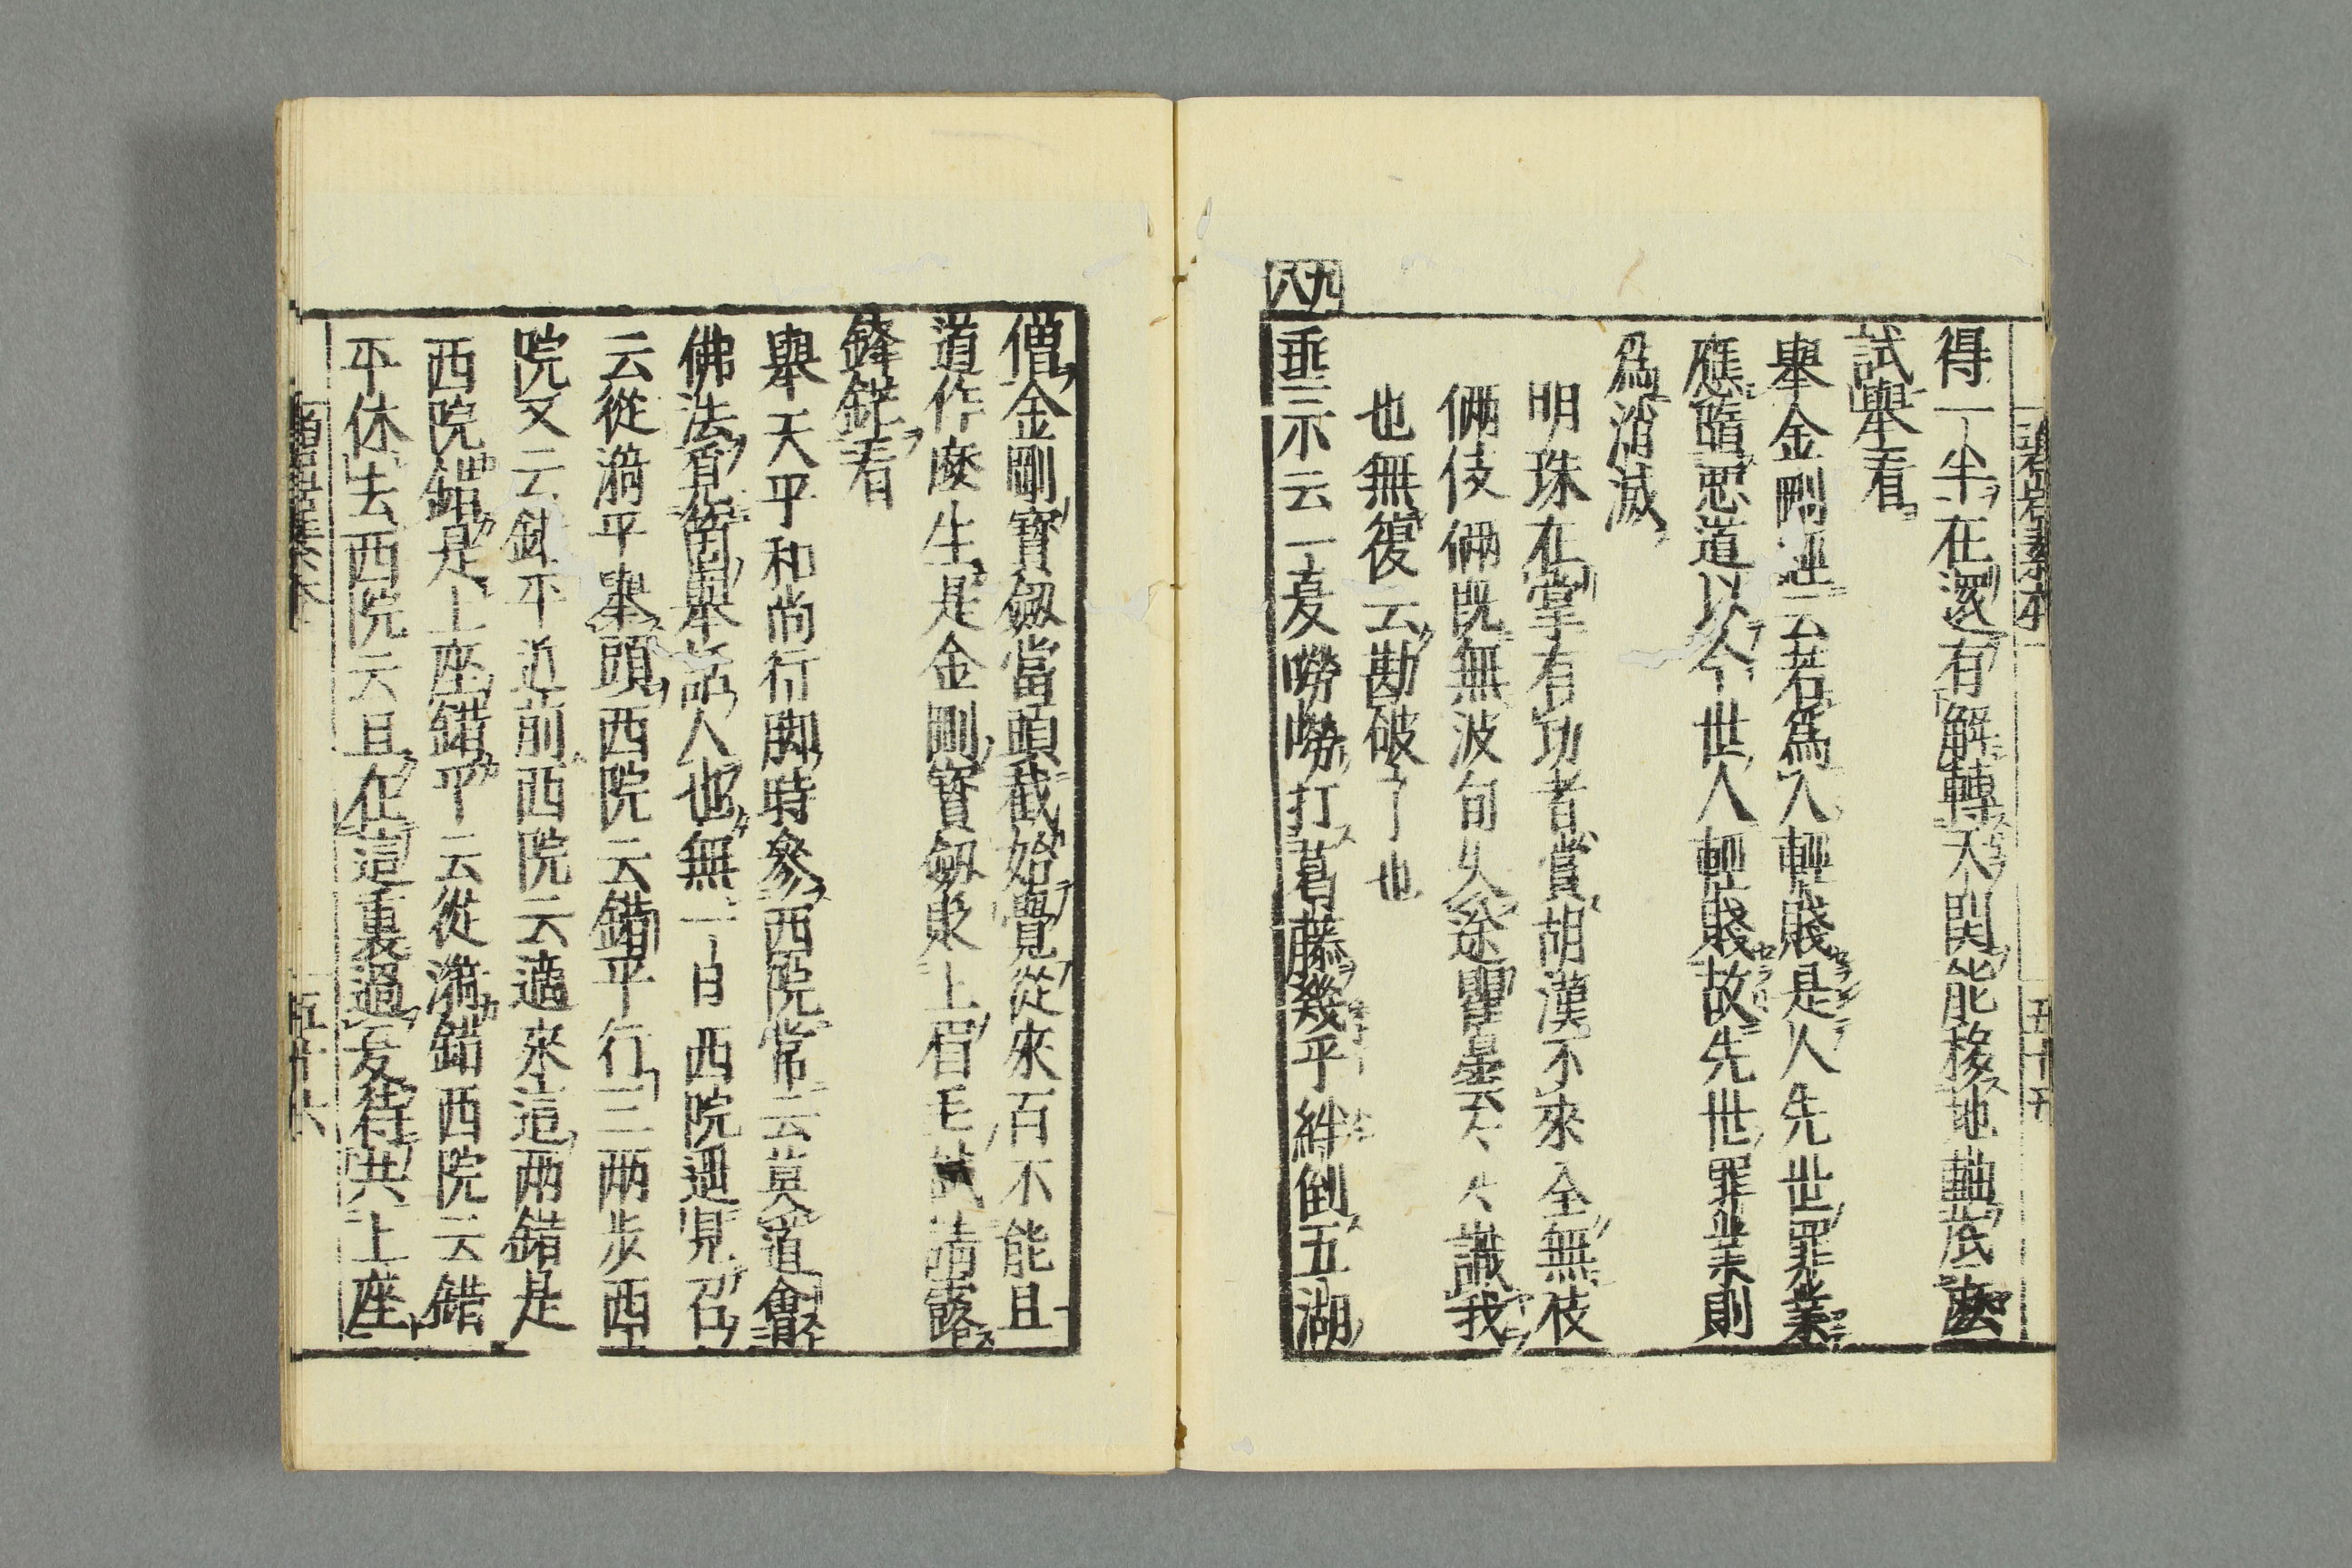 得一半在還有解轉天関能移地軸底麼
試舉看
舉金剛經云若為人輕賤是人先世罪業
應墮惡道以今世人輕賤故先世罪業則
為消滅
明珠在掌有功者賞胡漢不來全無伎
倆伎倆既無波旬失途瞿曇瞿曇識我
也無復云勘破了也
九八
垂示云一夏嘮嘮打葛藤幾乎絆倒五湖
僧金剛寶劔當頭截始覺從來百不能且
道作麼生是金剛寶劔眨上眉毛試請露
鋒鋩看
舉天平和尚行脚時參西院常云莫道會
佛法覓箇舉話人也無一日西院遥見召
云從漪平舉頭西院云錯平行三兩步西
院又云錯平近前西院云適來這兩錯是
西院錯是上座錯平云從漪錯西院云錯
平休去西院云且在這裏過夏待共上座
五十六